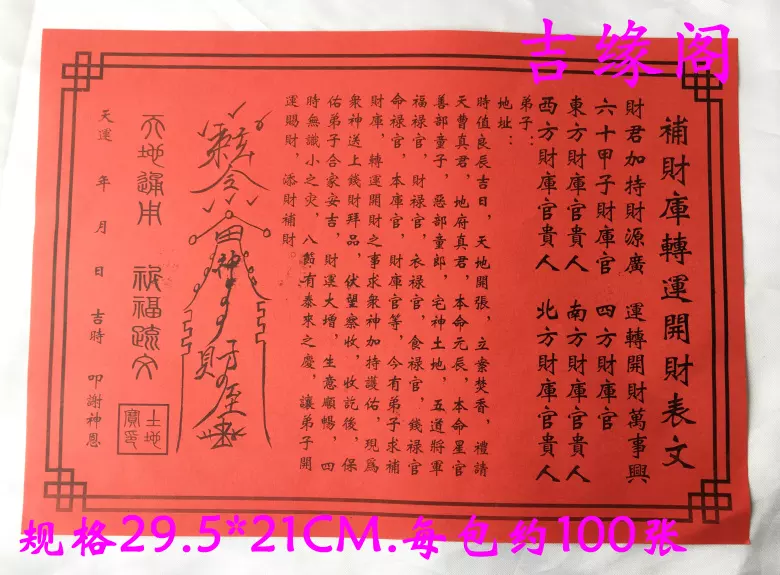 吉缘阁
補財庫轉運開財表文
財君加持財源廣 運轉開財萬事興
六十甲子財庫官 四方財庫官
東方財庫官貴人 南方財庫官貴人
西方財庫官貴人 北方財庫官貴人
弟子：
地址：
時值良辰吉日，天地開張，立案焚香，禮請
天曹真君，地府真君，本命元辰，本命星官
善部童子，惡部童郎，宅神土地，五道將軍
福祿官，財祿官，衣祿官，食祿官，錢祿官
命祿官，本庫官，財庫官等，今有弟子求補
財庫，轉運開財之事求衆神加持護佑，現爲
衆神送上錢財拜品，伏望察收，收訖後，保
佑弟子合家安吉，財運大增，生意順暢，四
時無識小之灾，八節有泰來之慶，讓弟子開
運賜財，添財補財。
天地通用 祈福疏文
土地寶印
天運 年 月 日 吉時 叩謝神恩
规格29.5*21CM.每包约100张